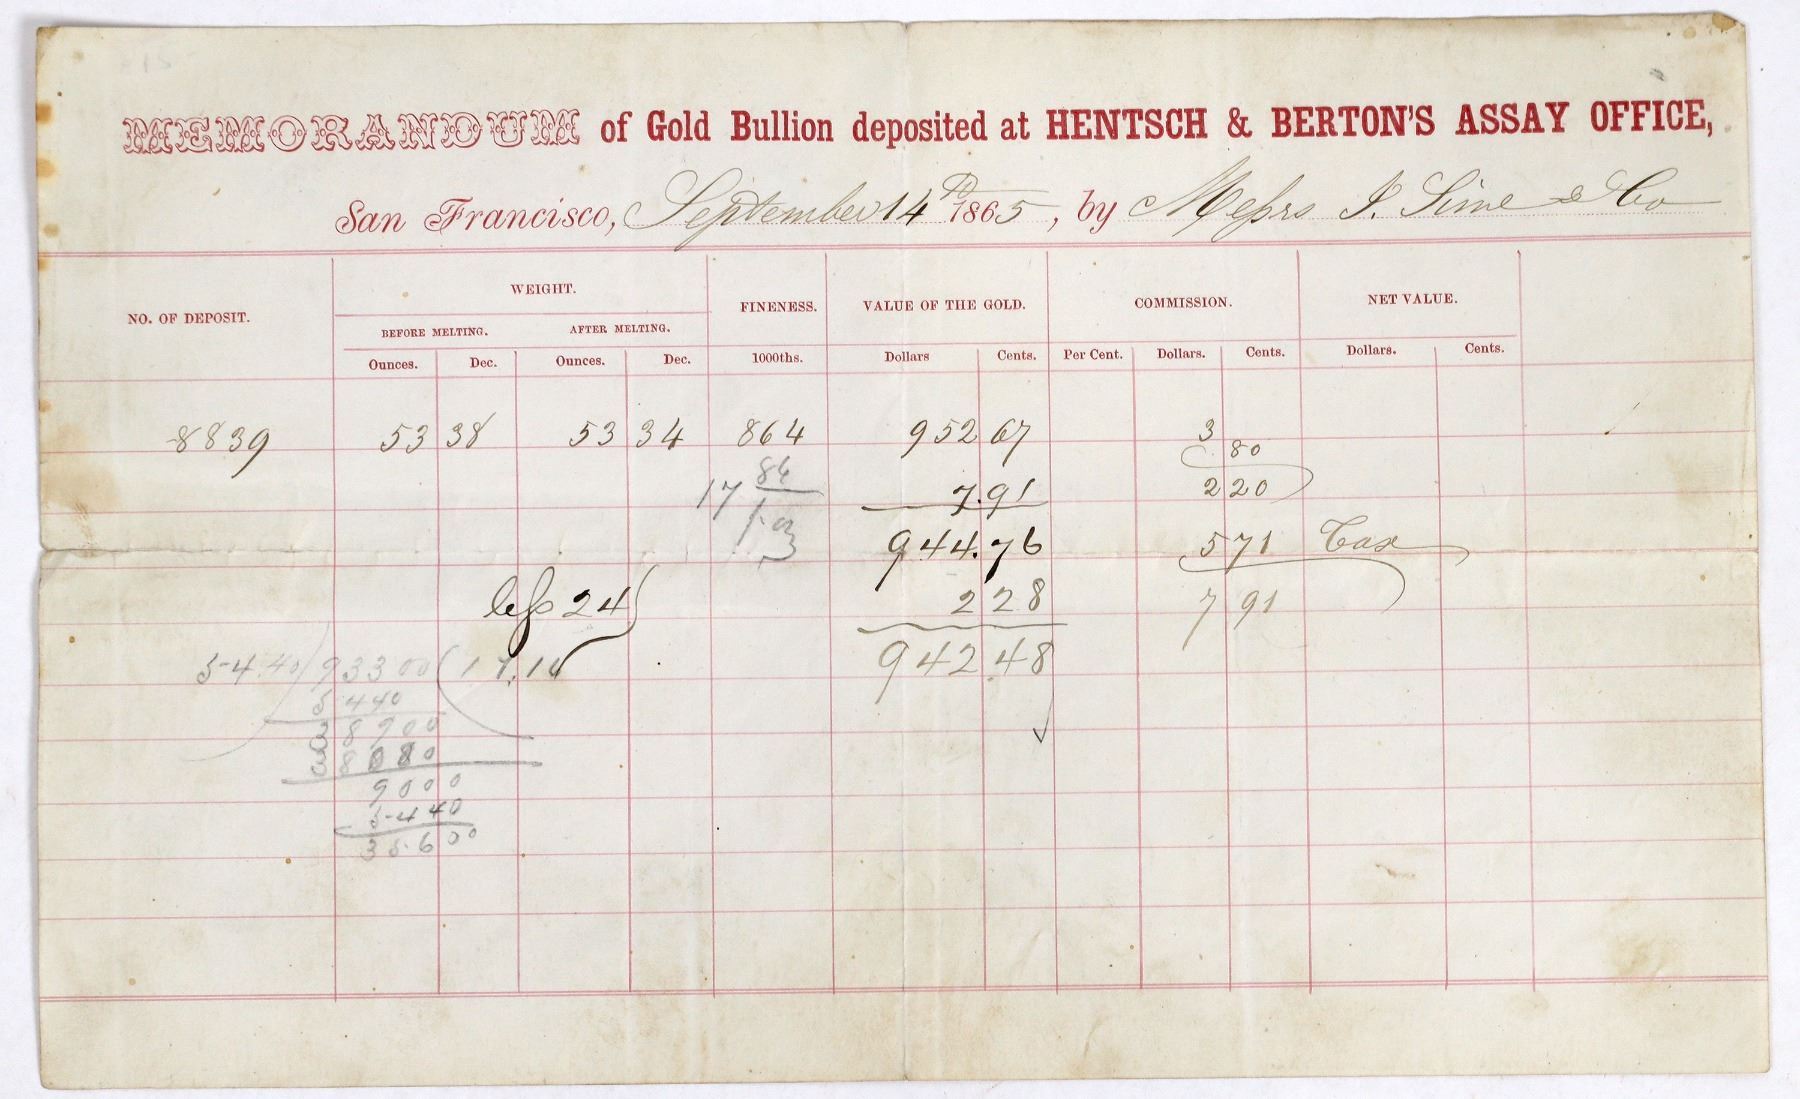 MEMORANDUM of Gold Bullion deposited at HENTSCH & BERTON'S ASSAY OFFICE,
San Francisco, September 14th 1865, by Messrs I. Sime & Co
NO. OF DEPOSIT. WEIGHT. FINENESS. VALUE OF THE GOLD. COMMISSION. NET VALUE.
BEFORE MELTING. AFTER MELTING.
Ounces. Dec. Ounces. Dec. 1000ths. Dollars Cents. Per Cent. Dollars. Cents. Dollars. Cents.
8839 53 38 53 34 864 952 67 3
80
17 86 7.91 2 20
1.03 944.76 5 71 Tax
less 24 2 28 7 91
54.40 93300 17.14 942.48
5440
38900
38080
9000
5440
35600